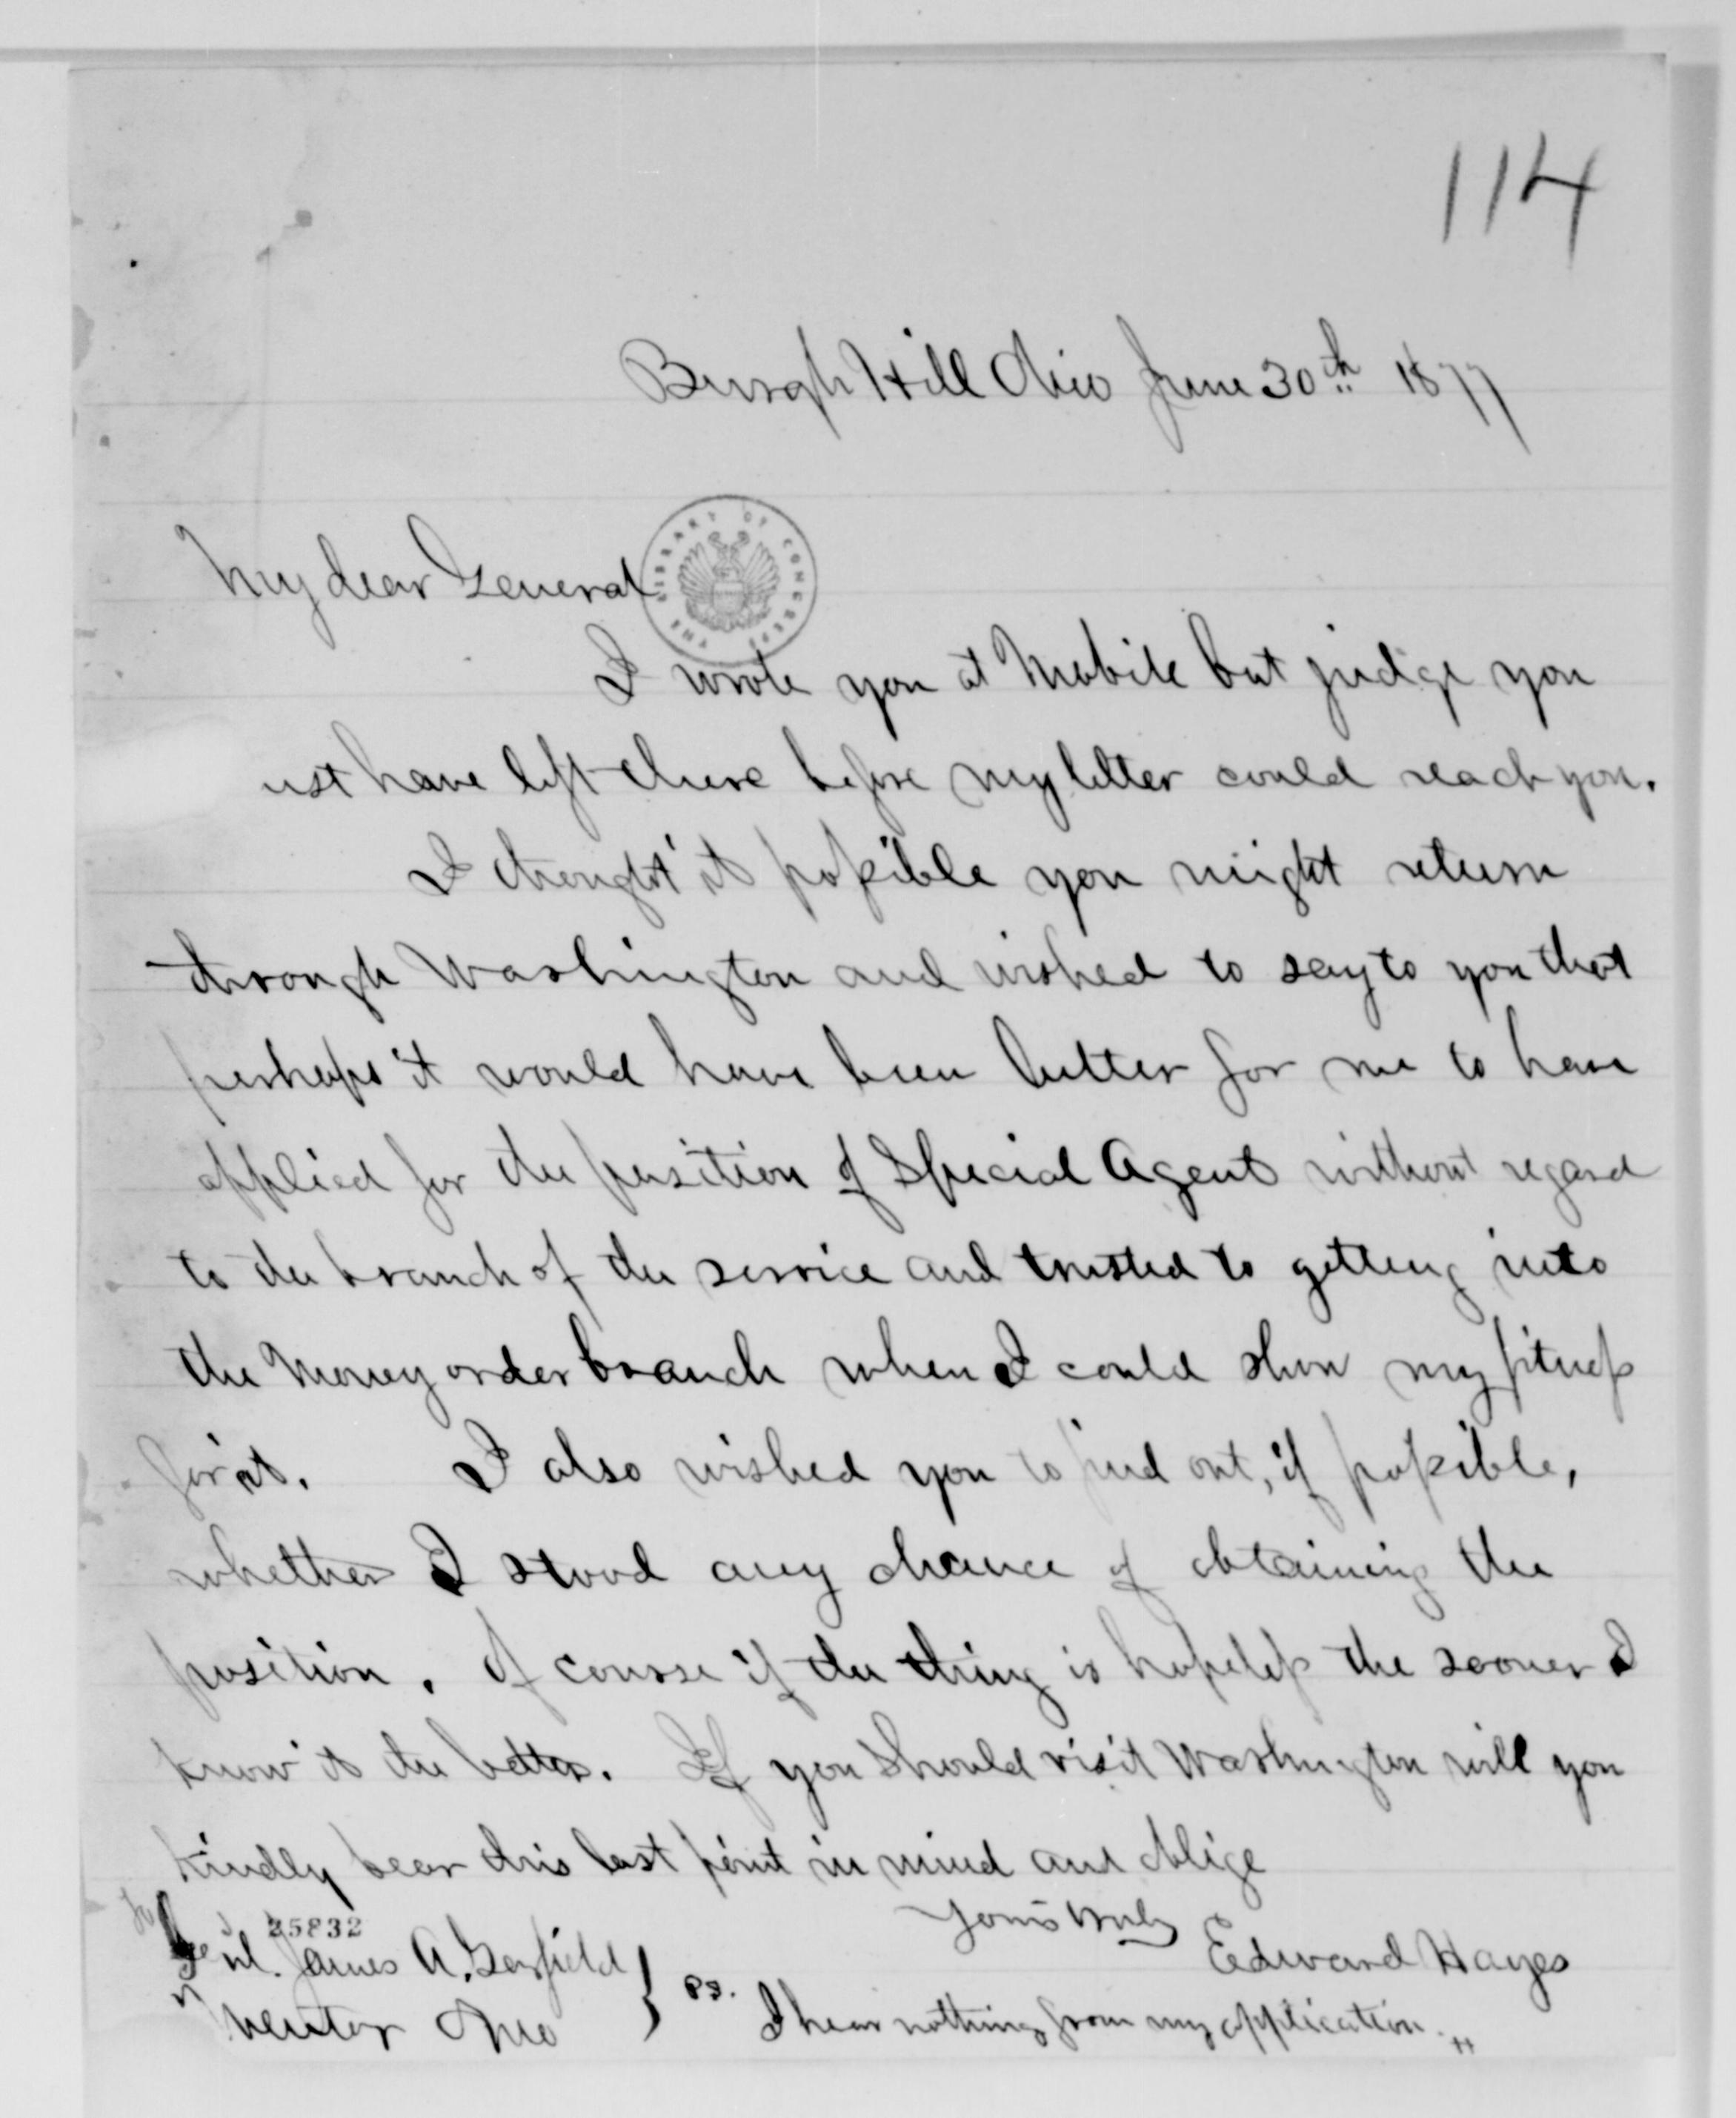 114
Burgh Hill Ohio June 30th 1877
My dear General
THE LIBRARY OF CONGRESS
I wrote you at Mobile but judge you
ust have left there before my letter could reach you.
I thought it possible you might return
through Washington and wished to say to you that
perhaps it would have been better for me to have
applied for the position of Special Agent without regard
to the branch of the service and trusted to getting into
the Money order branch when I could show my fitness
for it. I also wished you to find out, if possible,
whether I stood any chance of obtaining the
position. Of course if the thing is hopeless the sooner I
know it the better. If you should visit Washington will you
kindly bear this last point in mind and oblige
Yours truly
Edward Hayes
25832
Genl. James A. Garfield
Mentor Ohio
P.S. I hear nothing from my application.